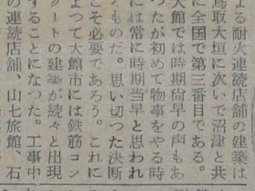 よる耐火連続店舗の建築は
鳥取大垣に次いで沼津と共
に全国で第三番目である。
大館では時期尚早の声もあ
つたが初めて物事をやる時
には常に時期早と思われ
るものだ。思い切つた決断
こそ必要であろう。これに
よつて大館市には鉄筋コン
クリートの建築が続々と出現
することになつた。工事中
の連続店舗、山七旅館、石